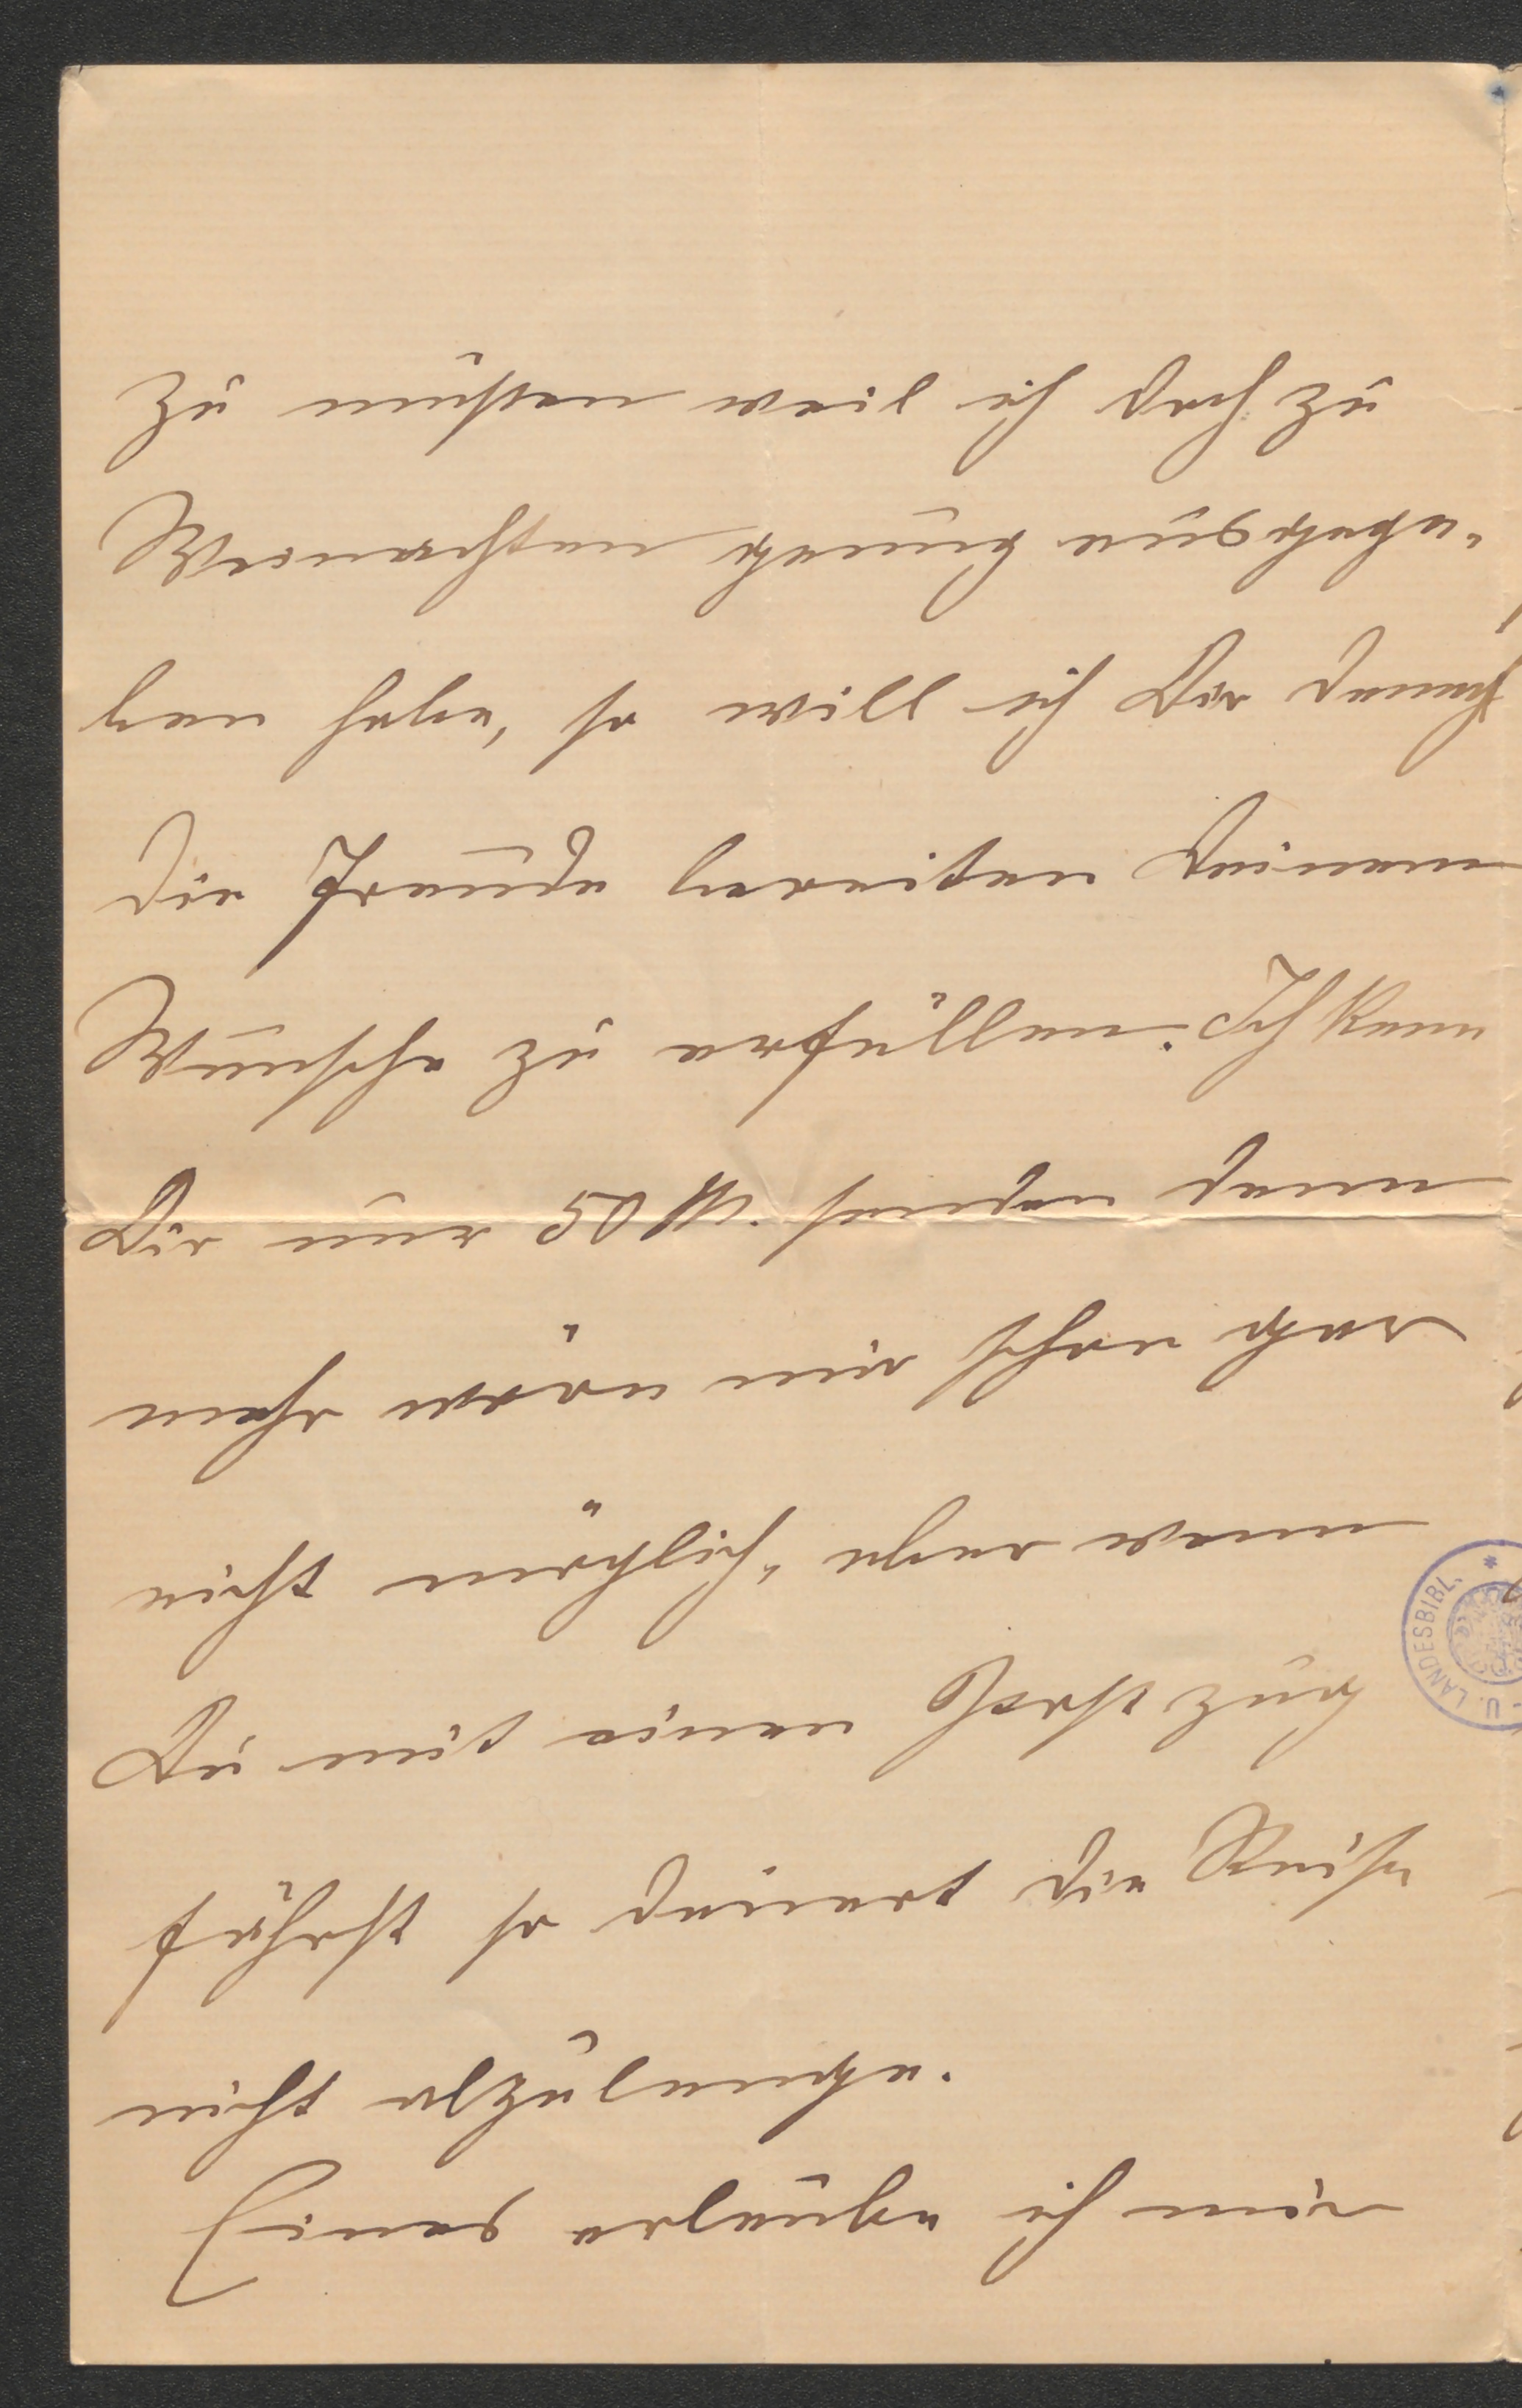 zu müssen weil ich doch zu
Weinachten genug ausgege-
ben habe, so will ich Dir dennoch
die Freude bereiten Deinem
Wunsche zu erfüllen. Ich kann
Dir nur 50 M. senden denn
mehr wäre mir schon gar
nicht möglich, aber wenn
Du mit einem Postzug
fährst so dauert die Reise
nicht alzulange.
Eines erlaube ich mir
U. LANDESBIBL. *